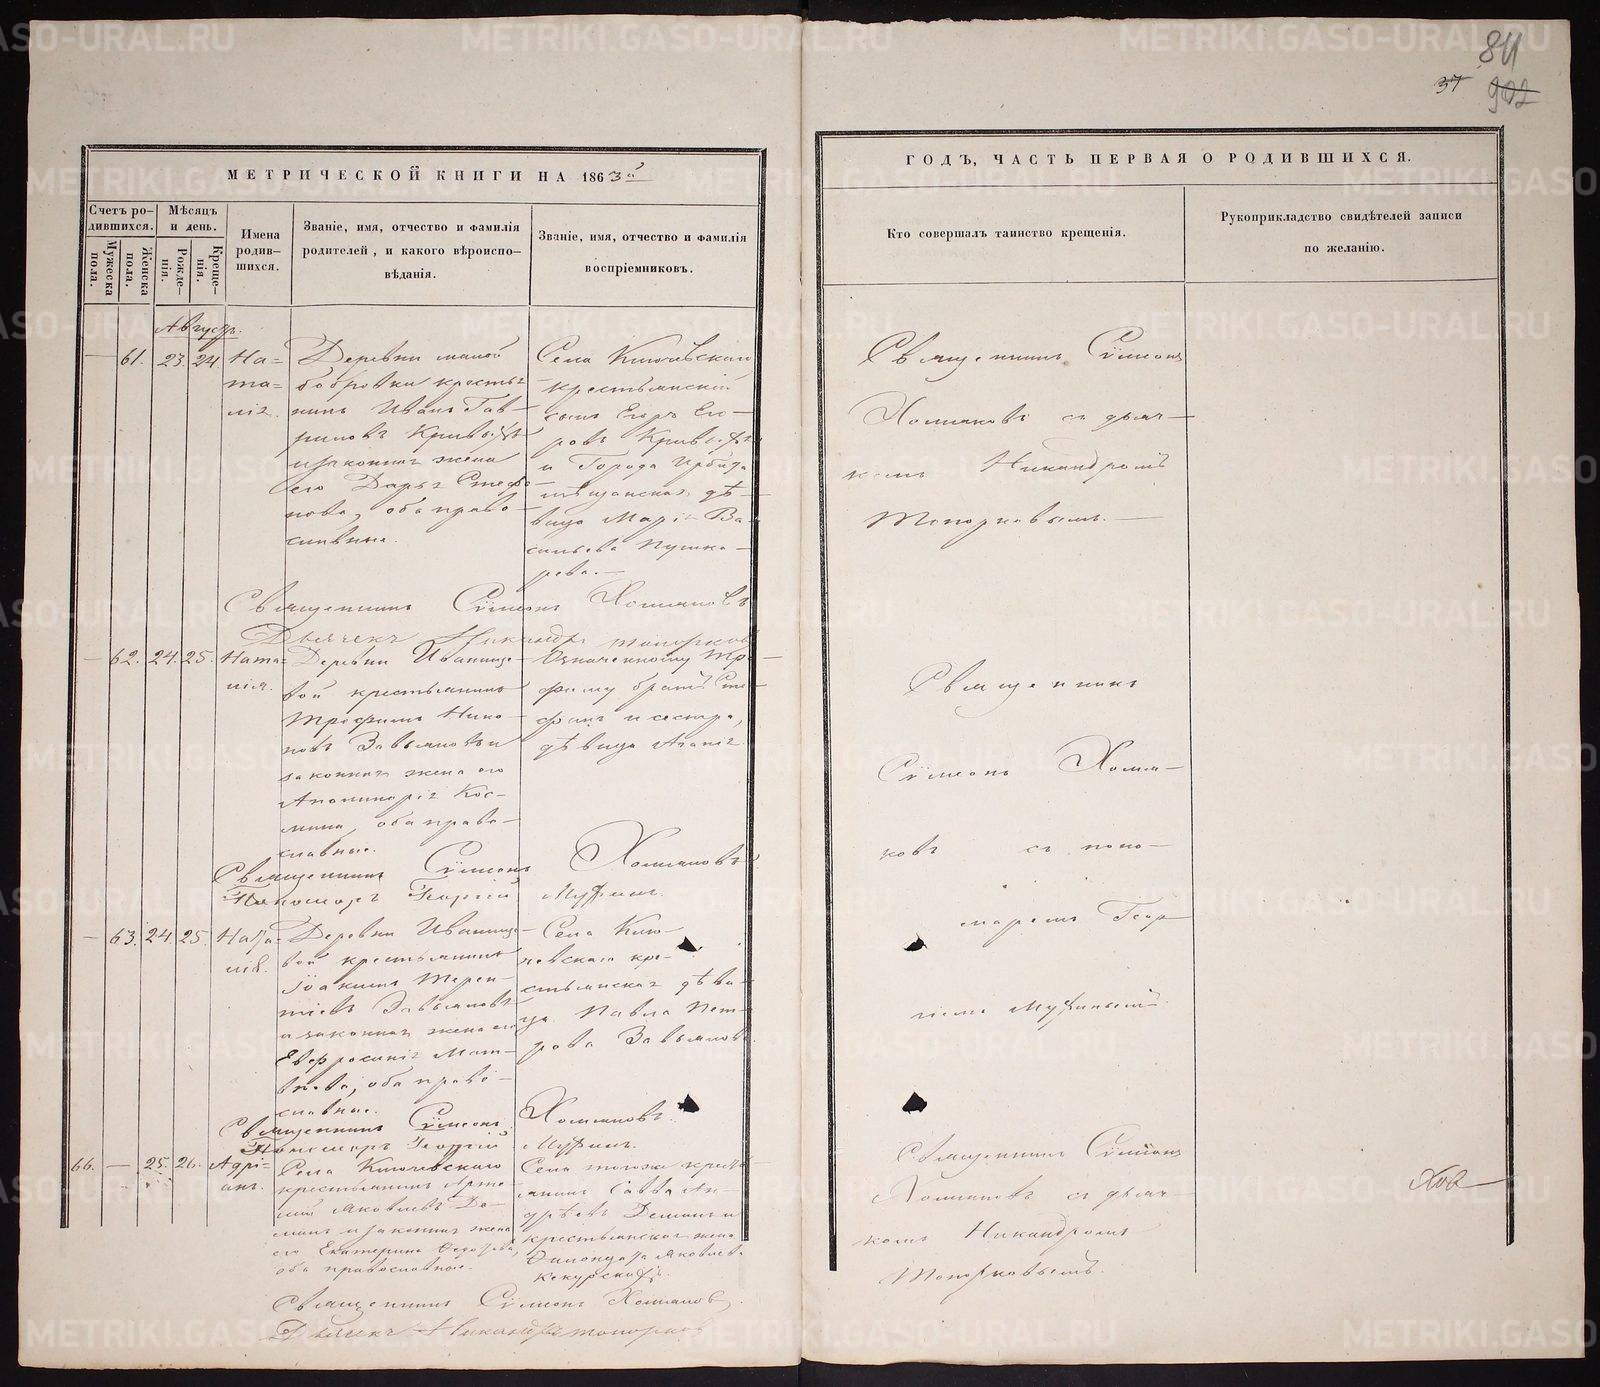 84
37
902
МЕТРИЧЕСКОЙ КНИГИ НА 1863й
ГОДЪ, ЧАСТЬ ПЕРВАЯ О РОДИВШИХСЯ.
Счетъ ро-
дившихся.
Мужеска
пола.
Женска
пола.
Мѣсяцъ
и день.
Рожде-
нія.
Креще-
нія.
Имена
родив-
шихся.
Званіе, имя, отчество и фамилія
родителей, и какого вѣроиспо-
вѣданія.
Званіе, имя, отчество и фамилія
воспріемниковъ.
Кто совершалъ таинство крещенія.
Рукоприкладство свидѣтелей записи
по желанію.
Августъ.
61. 23. 24.
На=
та=
лія.
Деревни малой
бобровки крестья
нинъ Иванъ Гав-
риловъ
и законная жена
его Дарья Стефа-
нова, оба право-
славные.
Села Ключевскаго
крестьянскій
сынъ Егоръ Его-
ровъ
и Города Ирбита
мѣщанская дѣ-
вица Марія Ва-
сильева Пушка-
рева.
Священникъ Сѵмеонъ
Хомяковъ съ дьяч-
комъ Никандромъ
Топорковымъ.
Священникъ Сѵмеонъ Хомяковъ
Дьячекъ Никандръ Топорковъ
62. 24. 25.
Ната=
лія.
Деревни Иванище-
вой крестьянинъ
Трофимъ Нико-
новъ Завьяловъ и
законная жена его
Аполинарія Кос-
мина, оба право-
славные.
Означенному Тро-
фиму братъ Сте-
фанъ и сестра,
дѣвица Агапія.
Священникъ
Сѵмеонъ Хомя-
ковъ съ поно-
маремъ Геор-
гіемъ
Священникъ Сѵмеонъ Хомяковъ
Пономарь Георгій
63. 24. 25.
Ната=
лія.
Деревни Иванище-
вой крестьянинъ
Іоакимъ Терен-
тіевъ Завьяловъ
и законная жена его
Евфросинія Мат-
вѣева, оба право-
славные.
Села Клю-
чевскаго кре-
стьянская дѣви-
ца Павла Пет-
рова Завьялова.
Священникъ Сѵмеонъ Хомяковъ.
Пономарь Георгій
66. 25. 26.
Адрі=
анъ.
Села Ключевскаго
крестьянинъ Арте-
мій Яковлевъ Де-
минъ и законная жена
его Екатерина Федотова,
оба православные.
Села тогоже кресть-
янинъ Савва Ан-
дреевъ Деминъ и
крестьянская жена
Яковлева
Священникъ Сѵмеонъ
Хомяковъ съ дьяч-
комъ Никандромъ
Топорковымъ.
Священникъ Сѵмеонъ Хомяковъ
Дьячекъ Никандръ Топорковъ
METRIKI.GASO-URAL.RU